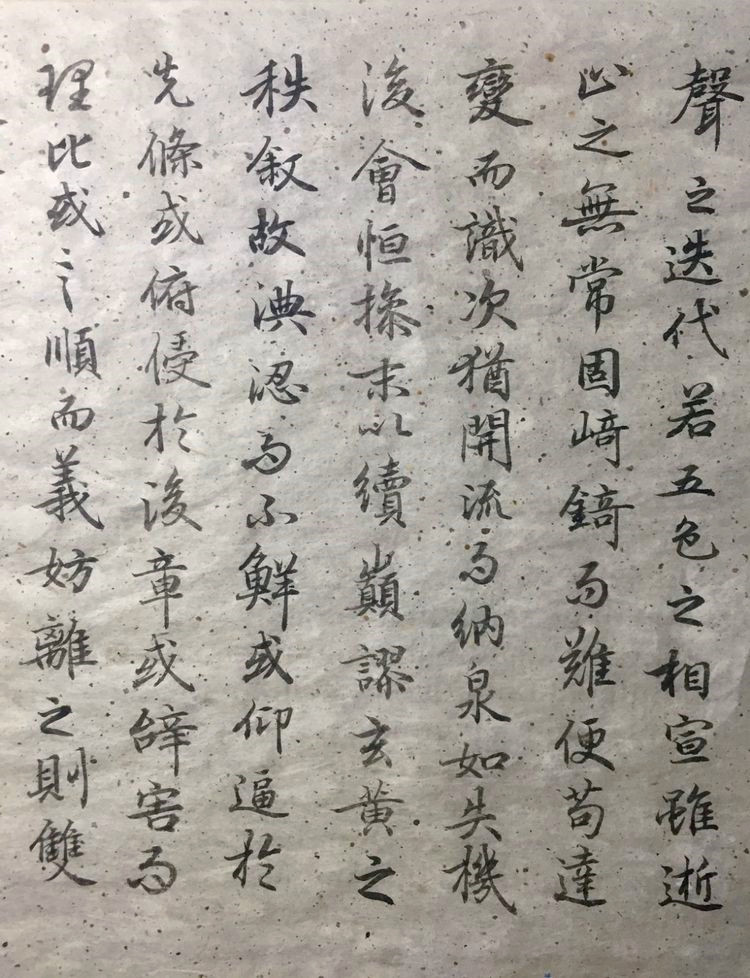 聲之迭代若五色之相宣雖逝
止之無常固崎錡而難便苟達
變而識次猶開流而納泉如失機
後會恒操末以續巔謬玄黃之
秩叙故淟涊而不鮮或仰逼於
先條或俯侵於後章或辭害而
理比或言順而義妨離之則雙